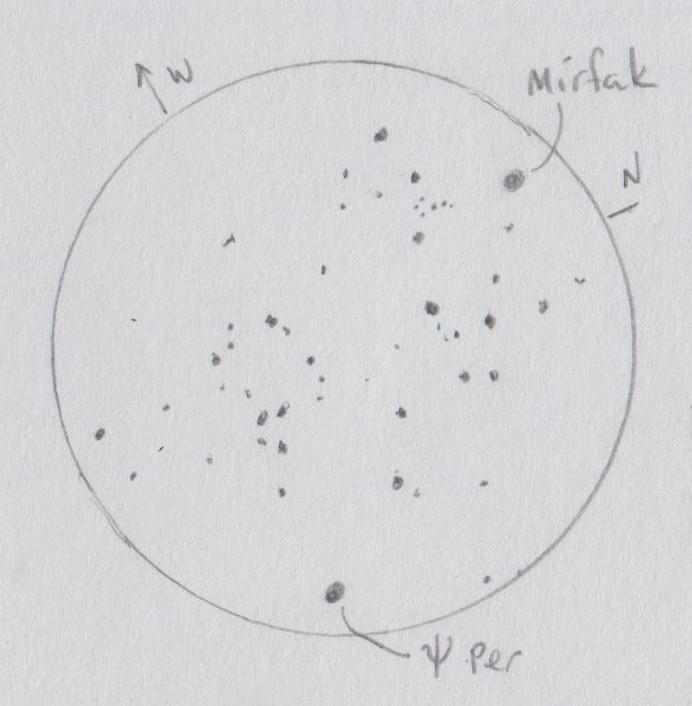 W
Mirfak
N
Ψ Per